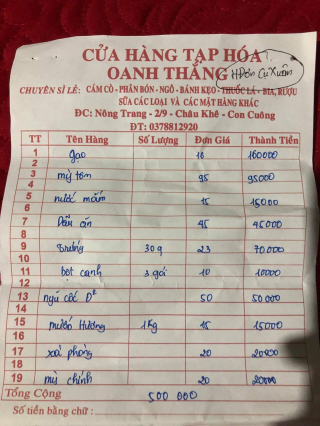 CỬA HÀNG TẠP HÓA
OANH THẮNG
HĐơn Cụ Xuân
CHUYÊN SỈ LẺ: CÁM CÒ - PHÂN BÓN - NGÔ - BÁNH KẸO - THUỐC LÁ - BIA, RƯỢU
SỮA CÁC LOẠI VÀ CÁC MẶT HÀNG KHÁC
ĐC: Nông Trang - 2/9 - Châu Khê - Con Cuông
ĐT: 0378812920
TT Tên Hàng Số Lượng Đơn Giá Thành Tiền
1 gạo 16 160000
2
3 mỳ tôm 95 95000
4
5 nước mắm 15 15000
6
7 Dầu ăn 45 45000
8
9 Trứng 30q 23 70.000
10
11 bột canh 3 gói 10 10000
12
13 ngũ cốc 50 50000
14
15 muối Hương 1Kg 15 15000
16
17 xà phòng 20 20000
18
19 mì chính 20 20000
Tổng Cộng 500 000
Số tiền bằng chữ :